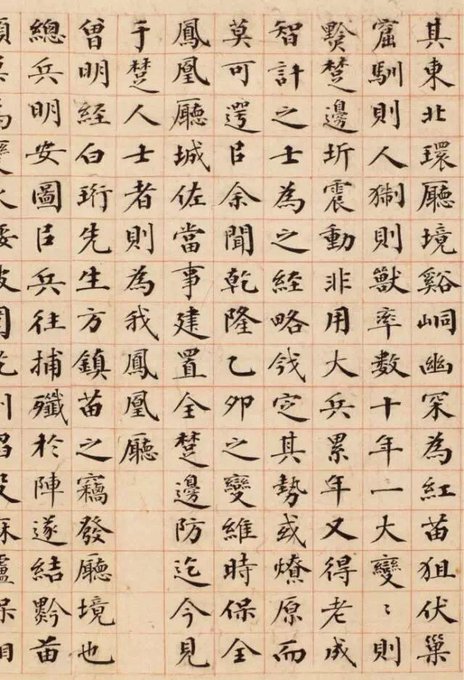 其東北環廳境谿峒幽罙為紅苗狙伏巢
窟馴則人猘則獸率數十年一大變〻則
黔楚邊圻震動非用大兵累年又得老成
智計之士為之經略定其勢或燎原而
莫可遌㠯余聞乾隆乙夘之變維時保全
鳳凰廳城佐當事建置全楚邊防迄今見
于楚人士者則為我鳳凰廳
曾明經白珩先生方鎮苗之竊發廳境也
總兵明安圖㠯兵往捕殲於陣遂結黔苗